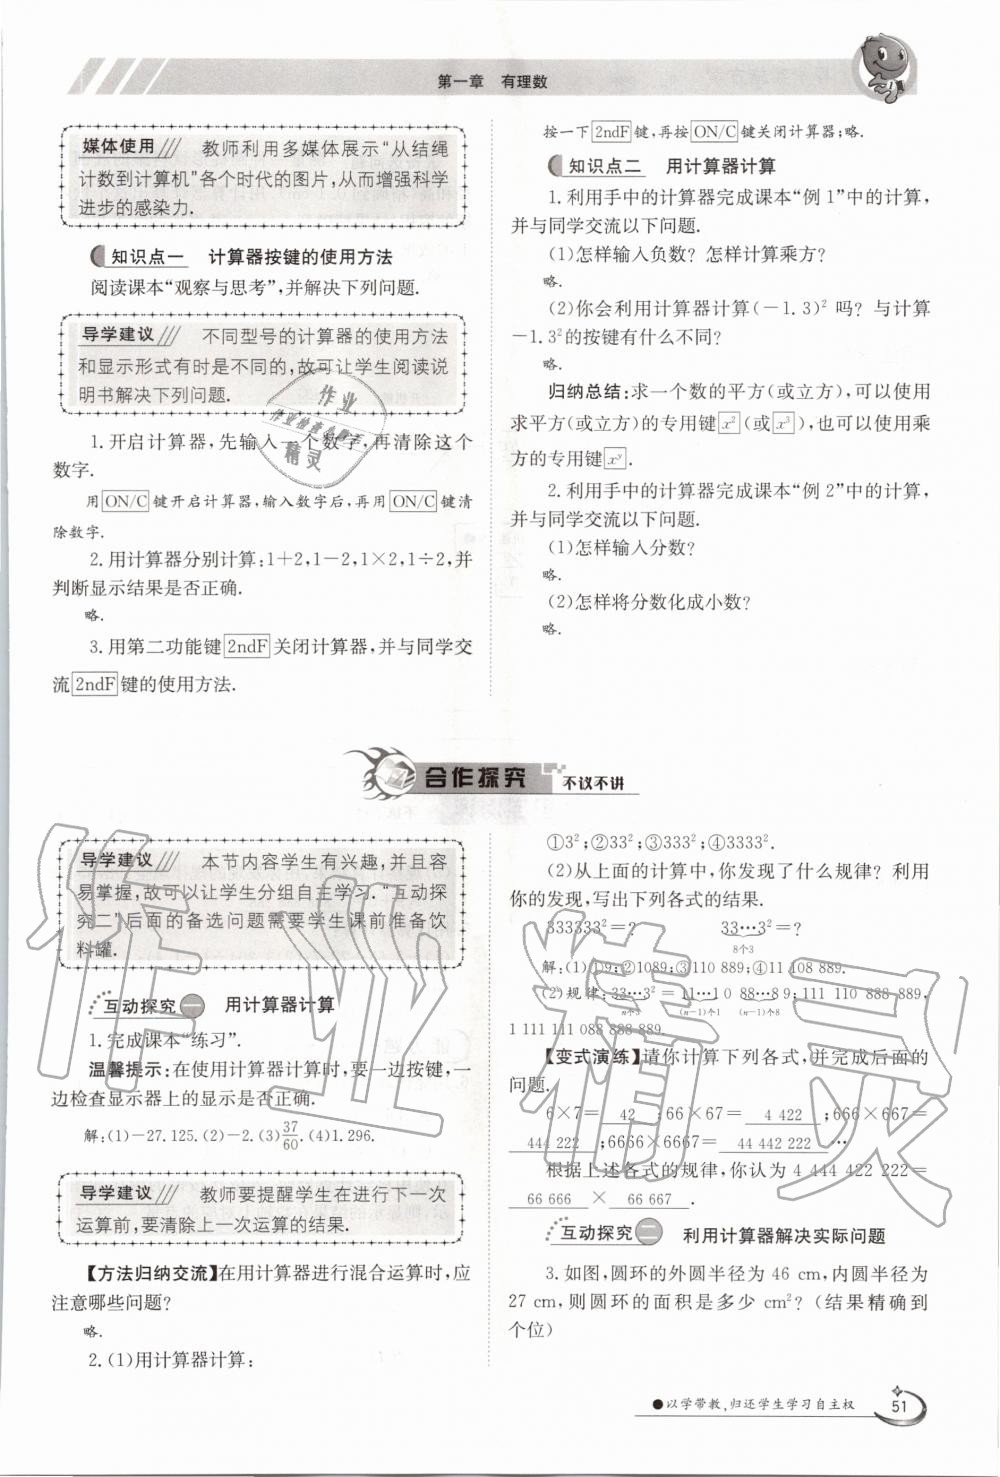 第一章 有理数
媒体使用 教师利用多媒体展示“从结绳
计数到计算机”各个时代的图片,从而增强科学
进步的感染力.
知识点一 计算器按键的使用方法
阅读课本“观察与思考”,并解决下列问题.
导学建议 不同型号的计算器的使用方法
和显示形式有时是不同的,故可让学生阅读说
明书解决下列问题.
1.开启计算器,先输入一个数字,再清除这个
数字.
用ON/C键开启计算器,输入数字后,再用ON/C键清
除数字.
2.用计算器分别计算:1+2,1-2,1×2,1÷2,并
判断显示结果是否正确.
略.
3.用第二功能键2ndF关闭计算器,并与同学交
流2ndF键的使用方法.
按一下2ndF键,再按ON/C键关闭计算器;略.
知识点二 用计算器计算
1.利用手中的计算器完成课本“例1”中的计算,
并与同学交流以下问题.
(1)怎样输入负数?怎样计算乘方?
略.
(2)你会利用计算器计算(-1.3)²吗?与计算
-1.3²的按键有什么不同?
略.
归纳总结:求一个数的平方(或立方),可以使用
求平方(或立方)的专用键x²(或x³),也可以使用乘
方的专用键xʸ.
2.利用手中的计算器完成课本“例2”中的计算,
并与同学交流以下问题.
(1)怎样输入分数?
略.
(2)怎样将分数化成小数?
略.
合作探究 不议不讲
导学建议 本节内容学生有兴趣,并且容
易掌握,故可以让学生分组自主学习.“互动探
究二”后面的备选问题需要学生课前准备饮
料罐.
互动探究一 用计算器计算
1.完成课本“练习”.
温馨提示:在使用计算器计算时,要一边按键,一
边检查显示器上的显示是否正确.
解:(1)-27.125.(2)-2.(3)37/60.(4)1.296.
导学建议 教师要提醒学生在进行下一次
运算前,要清除上一次运算的结果.
【方法归纳交流】在用计算器进行混合运算时,应
注意哪些问题?
略.
2.(1)用计算器计算:
①3²;②33²;③333²;④3333².
(2)从上面的计算中,你发现了什么规律?利用
你的发现,写出下列各式的结果.
333333²=? 33…3²=?
8个3
解:(1)①9;②1089;③110 889;④11 108 889.
(2)规律:33…3²=11…1 0 88…8 9;111 110 888 889,
n个3 (n-1)个1 (n-1)个8
1 111 111 088 888 889.
【变式演练】请你计算下列各式,并完成后面的
问题.
6×7= 42 ;66×67= 4 422 ;666×667=
444 222 ;6666×6667= 44 442 222 …
根据上述各式的规律,你认为4 444 422 222=
66 666 × 66 667 .
互动探究二 利用计算器解决实际问题
3.如图,圆环的外圆半径为46 cm,内圆半径为
27 cm,则圆环的面积是多少cm²?(结果精确到
个位)
●以学带教,归还学生学习自主权
51
作业
精灵
作业精灵